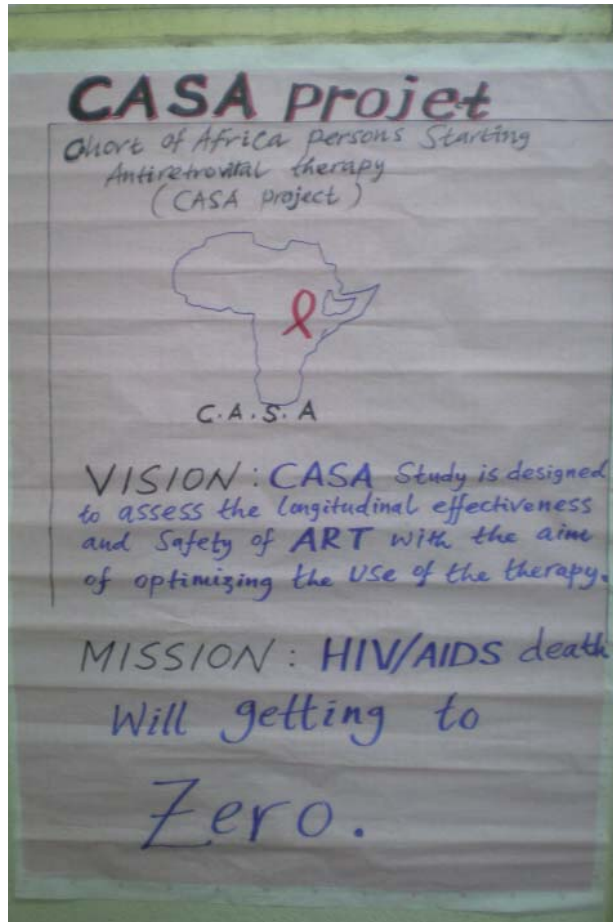 CASA projet
Cohort of Africa persons Starting
Antiretroviral therapy
(CASA project)
C.A.S.A
VISION: CASA Study is designed
to assess the longitudinal effectiveness
and Safety of ART with the aim
of optimizing the Use of the therapy.
MISSION: HIV/AIDS death
Will getting to
Zero.